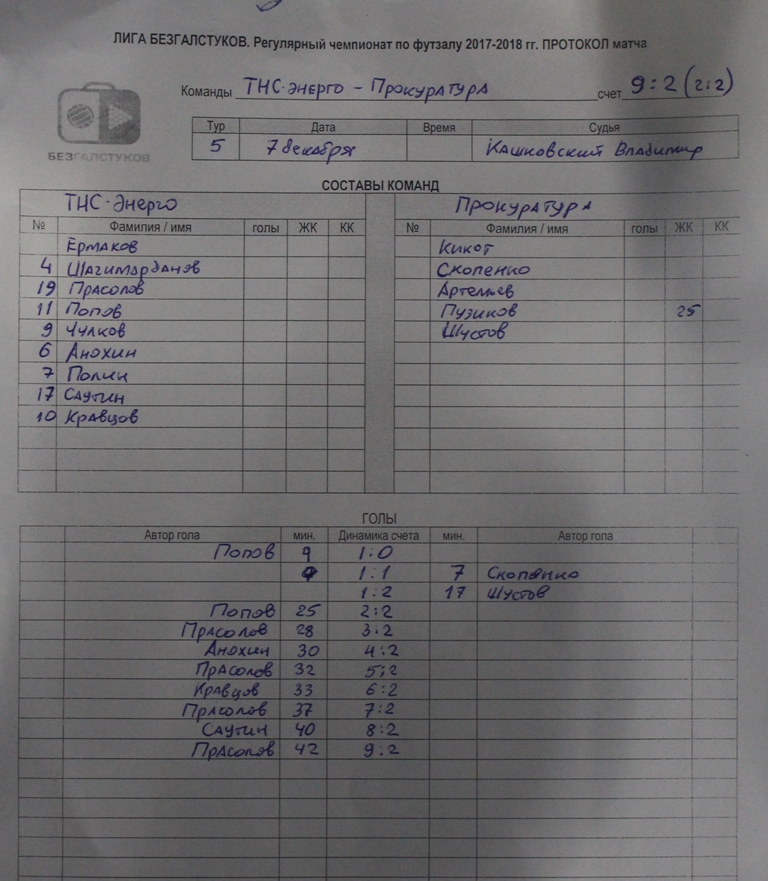 ЛИГА БЕЗГАЛСТУКОВ. Регулярный чемпионат по футзалу 2017-2018 гг. ПРОТОКОЛ матча
Команды ТНС-энерго - Прокуратура счет 9:2 (2:2)
БЕЗГАЛСТУКОВ
Тур Дата Время Судья
5 7 декабря Кашковский Владимир
СОСТАВЫ КОМАНД
ТНС-Энерго Прокуратура
№ Фамилия / имя голы ЖК КК № Фамилия / имя голы ЖК КК
Ермаков Кикот
4 Шагимарданов Скопенко
19 Прасолов Артемьев
11 Попов Пузиков 25
9 Чулков Шустов
6 Анохин
7 Полин
17 Саутин
10 Кравцов
ГОЛЫ
Автор гола мин. Динамика счета мин. Автор гола
Попов 9 1:0
1:1 7 Скопенко
1:2 17 Шустов
Попов 25 2:2
Прасолов 28 3:2
Анохин 30 4:2
Прасолов 32 5:2
Кравцов 33 6:2
Прасолов 37 7:2
Саутин 40 8:2
Прасолов 42 9:2